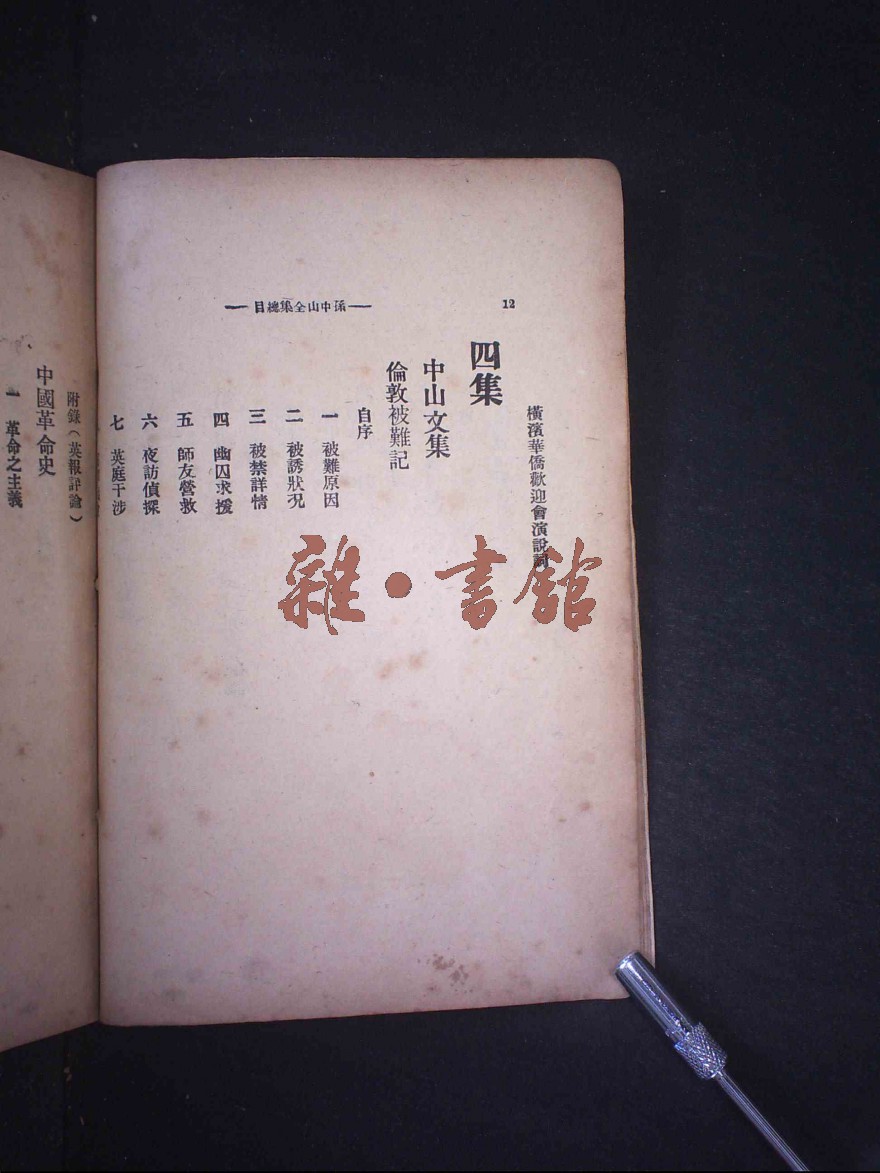 12
—孫中山全集總目—
橫濱華僑歡迎會演說詞
四集
中山文集
倫敦被難記
自序
一 被難原因
二 被誘狀況
三 被禁詳情
四 幽囚求援
五 師友營救
六 夜訪偵探
七 英庭干涉
附錄(英報評論)
中國革命史
一 革命之主義
雜·書館